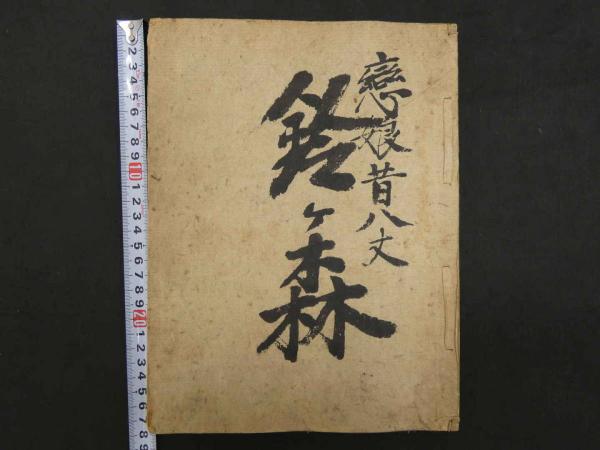 戀娘昔八丈
鈴ヶ森
2 3 4 5 6 7 8 9 10 1 2 3 4 5 6 7 8 9 20 1 2 3 4 5 6 7 8 9